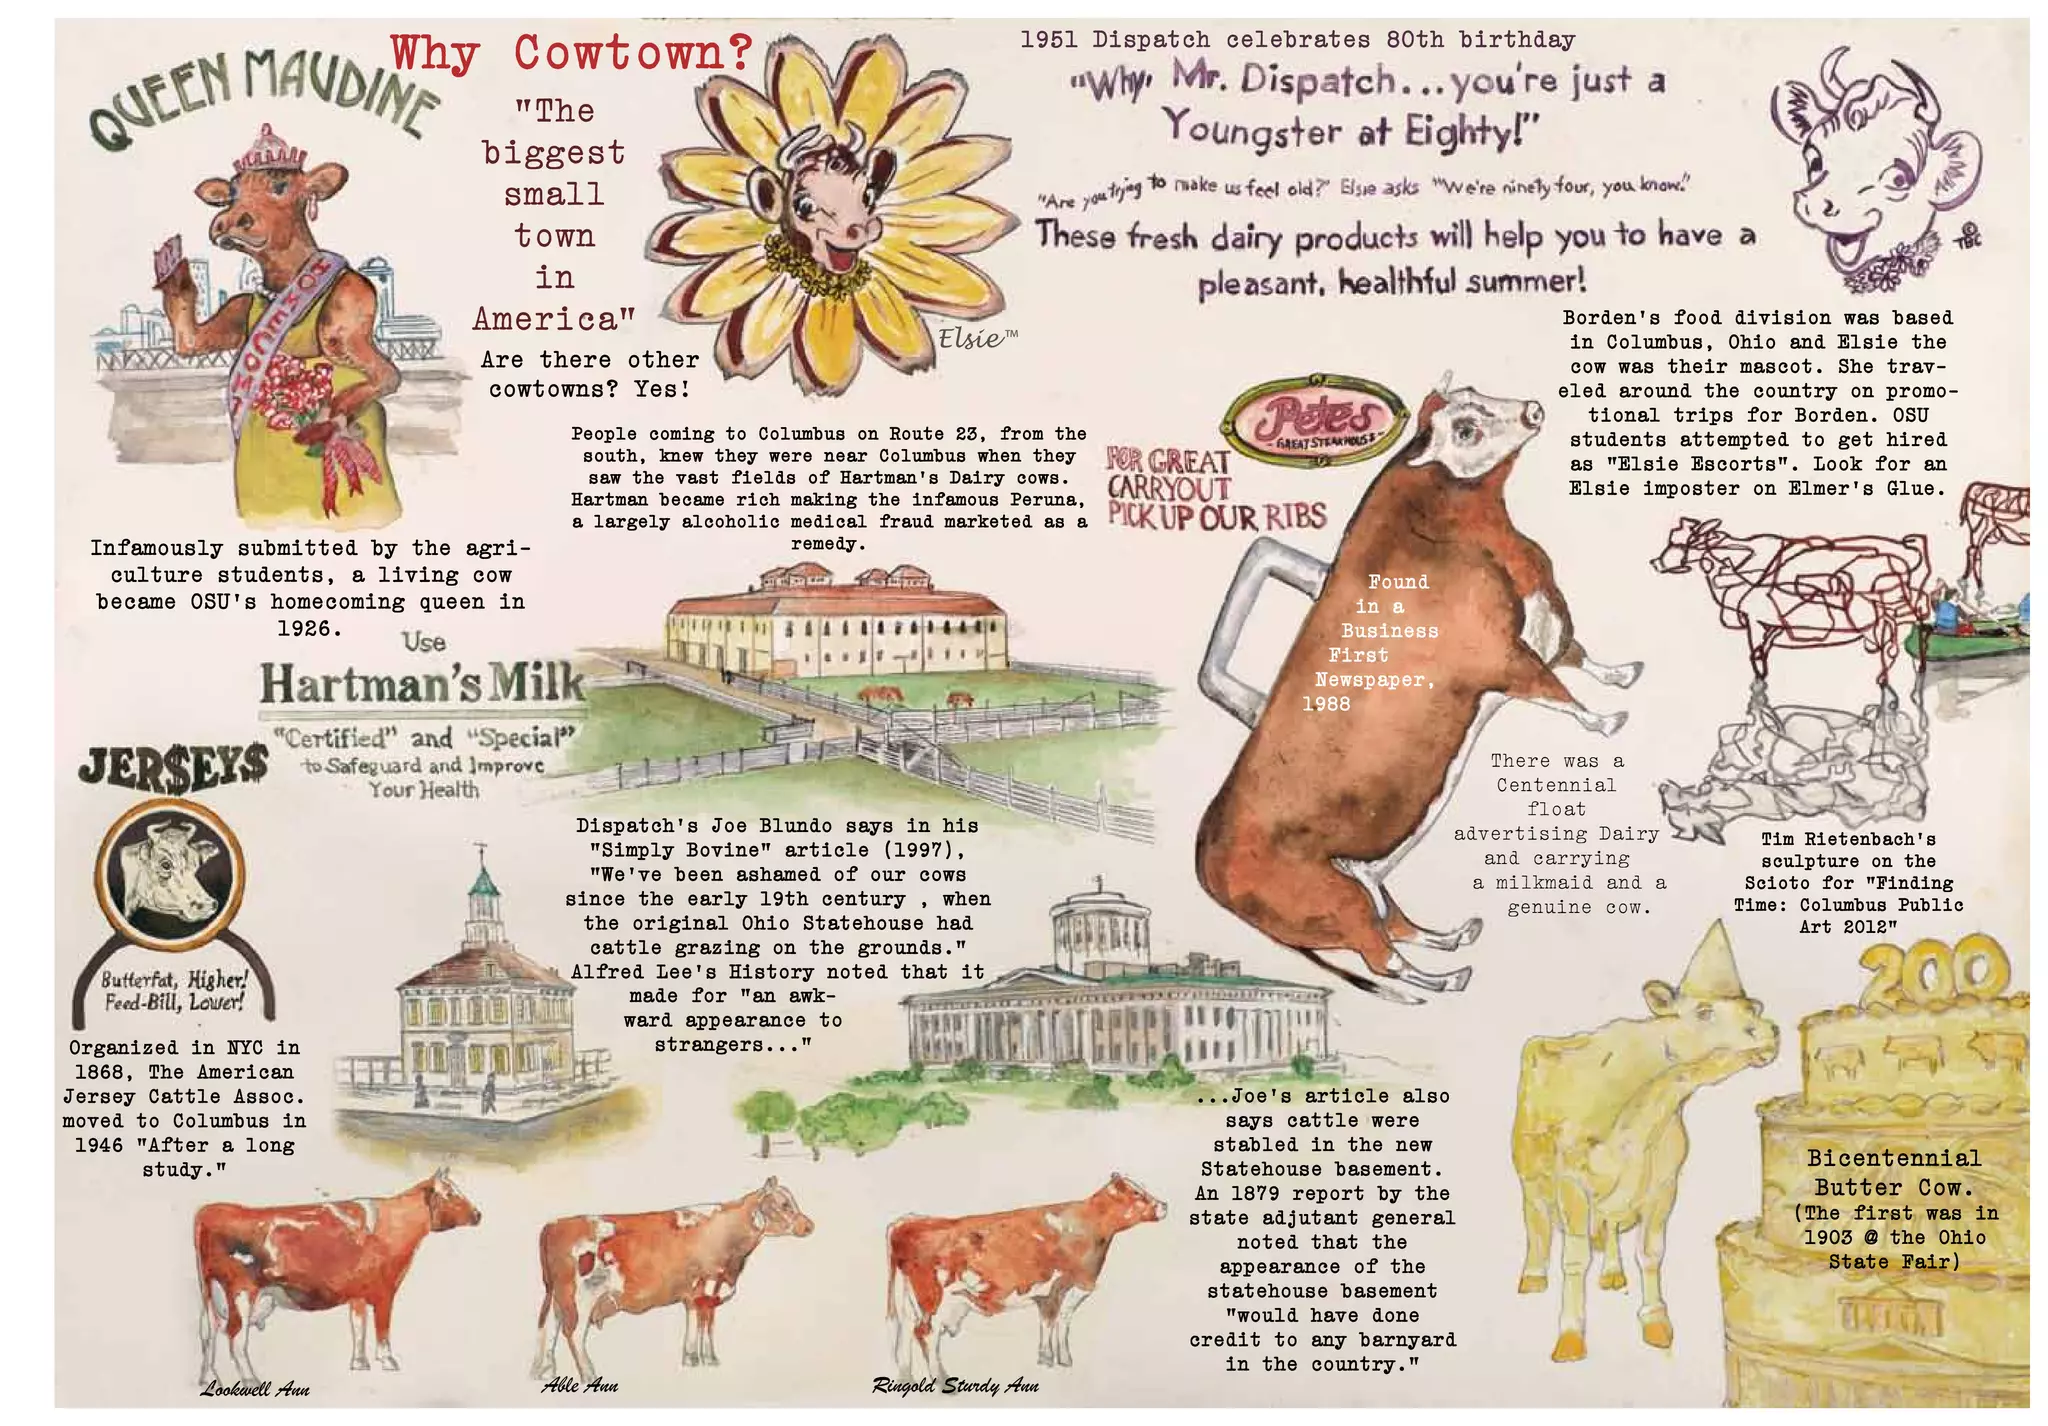 QUEEN MAUDINE
HOMECOMING
Why Cowtown?
"The
biggest
small
town
in
America"
Are there other
cowtowns? Yes!
Elsie™
1951 Dispatch celebrates 80th birthday
"Why" Mr. Dispatch...you're just a
Youngster at Eighty!"
"Are you trying to make us feel old?" Elsie asks "We're ninety four, you know."
These fresh dairy products will help you to have a
pleasant, healthful summer!
© TBC
Borden's food division was based
in Columbus, Ohio and Elsie the
cow was their mascot. She trav-
eled around the country on promo-
tional trips for Borden. OSU
students attempted to get hired
as "Elsie Escorts". Look for an
Elsie imposter on Elmer's Glue.
People coming to Columbus on Route 23, from the
south, knew they were near Columbus when they
saw the vast fields of Hartman's Dairy cows.
Hartman became rich making the infamous Peruna,
a largely alcoholic medical fraud marketed as a
remedy.
Petes
-GREAT STEAKHOUSE-
FOR GREAT
CARRYOUT
PICK UP OUR RIBS
Found
in a
Business
First
Newspaper,
1988
Infamously submitted by the agri-
culture students, a living cow
became OSU's homecoming queen in
1926.
Use
Hartman's Milk
"Certified" and "Special"
to Safeguard and Improve
Your Health
JER$EY$
Butterfat, Higher!
Feed-Bill, Lower!
Organized in NYC in
1868, The American
Jersey Cattle Assoc.
moved to Columbus in
1946 "After a long
study."
Dispatch's Joe Blundo says in his
"Simply Bovine" article (1997),
"We've been ashamed of our cows
since the early 19th century , when
the original Ohio Statehouse had
cattle grazing on the grounds."
Alfred Lee's History noted that it
made for "an awk-
ward appearance to
strangers..."
There was a
Centennial
float
advertising Dairy
and carrying
a milkmaid and a
genuine cow.
Tim Rietenbach's
sculpture on the
Scioto for "Finding
Time: Columbus Public
Art 2012"
...Joe's article also
says cattle were
stabled in the new
Statehouse basement.
An 1879 report by the
state adjutant general
noted that the
appearance of the
statehouse basement
"would have done
credit to any barnyard
in the country."
200
Bicentennial
Butter Cow.
(The first was in
1903 @ the Ohio
State Fair)
Lookwell Ann
Able Ann
Ringold Sturdy Ann